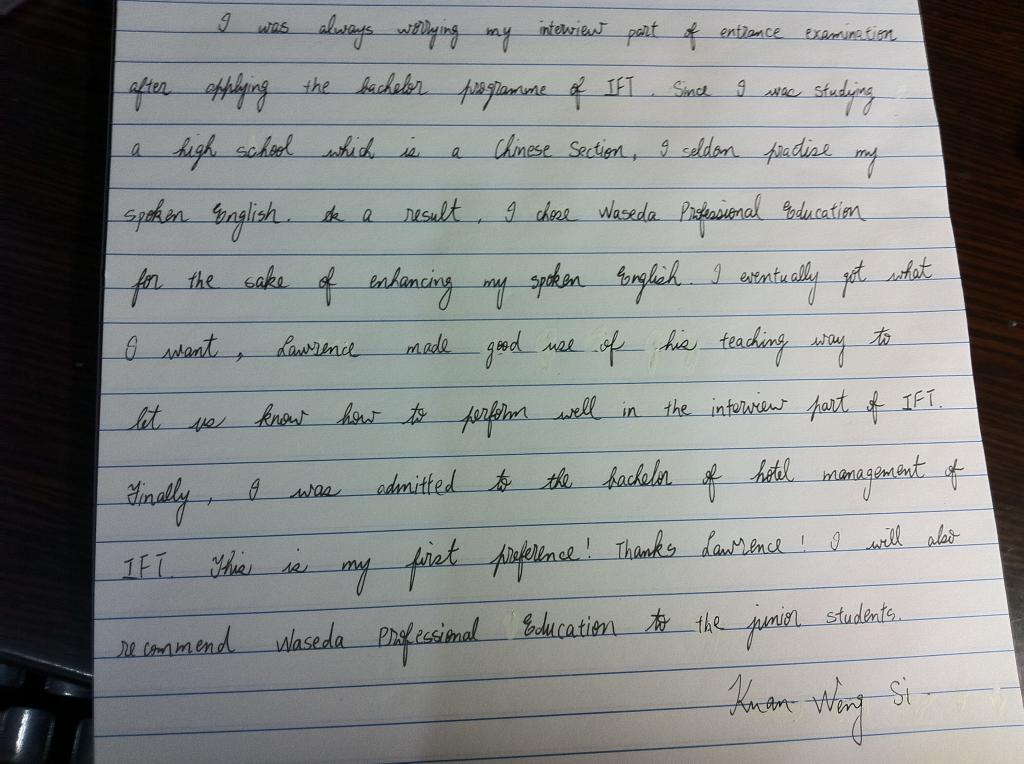 I was always worrying my interview part of entrance examination
after applying the bachelor programme of IFT. Since I was studying
a high school which is a Chinese Section, I seldom practise my
spoken English. As a result, I chose Waseda Professional Education
for the sake of enhancing my spoken English. I eventually got what
I want, Lawrence made good use of his teaching way to
let us know how to perform well in the interview part of IFT.
Finally, I was admitted to the bachelor of hotel management of
IFT. This is my first preference! Thanks Lawrence! I will also
recommend Waseda Professional Education to the junior students.
Kuan Weng Si